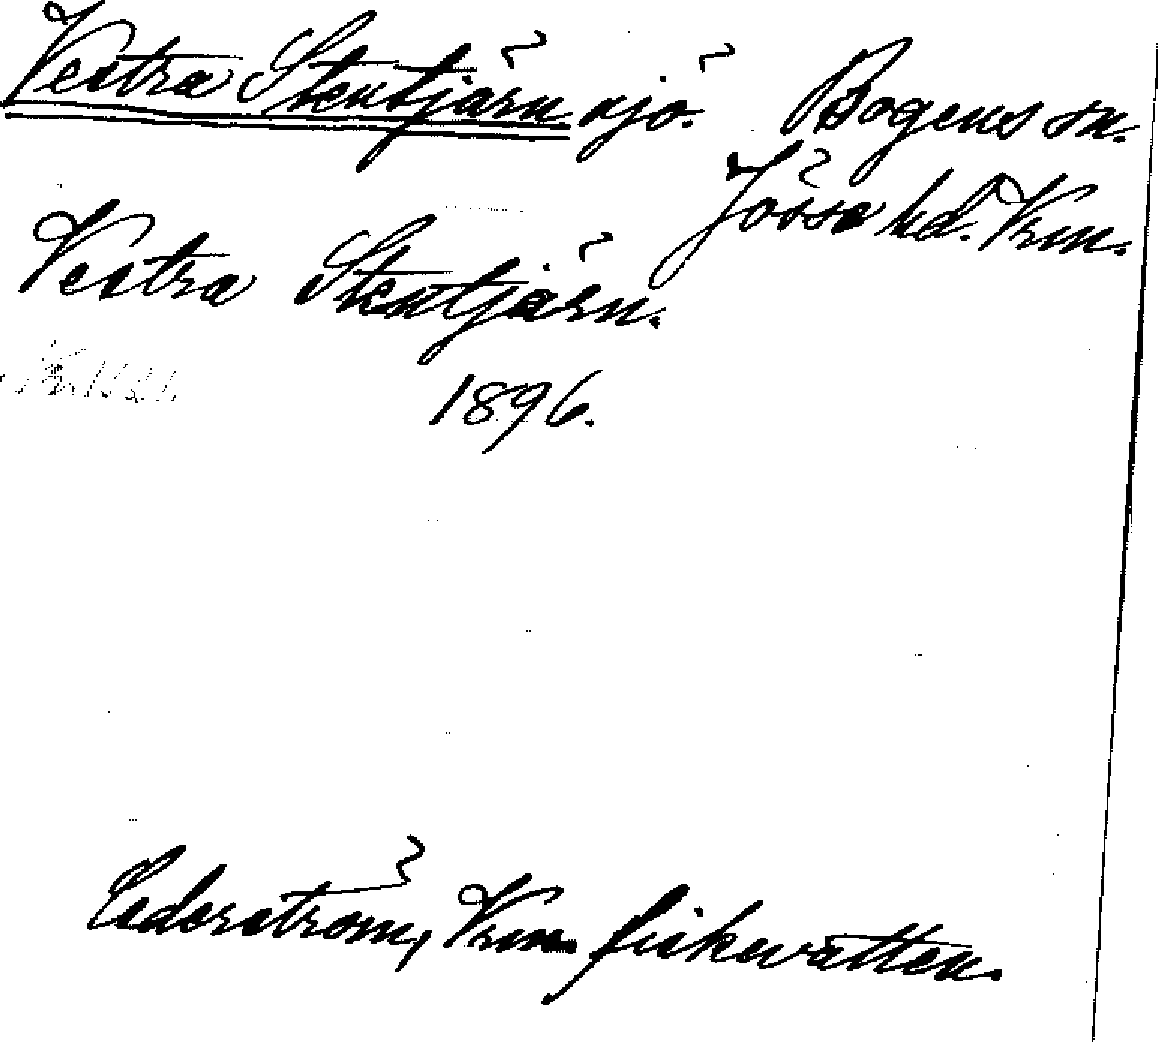 Vestra Stentjärn sjö. Bogens sn.
Jösse hd. Vrm.
Vestra Stentjärn.
1896.
Cederström, Vrm. fiskevatten.